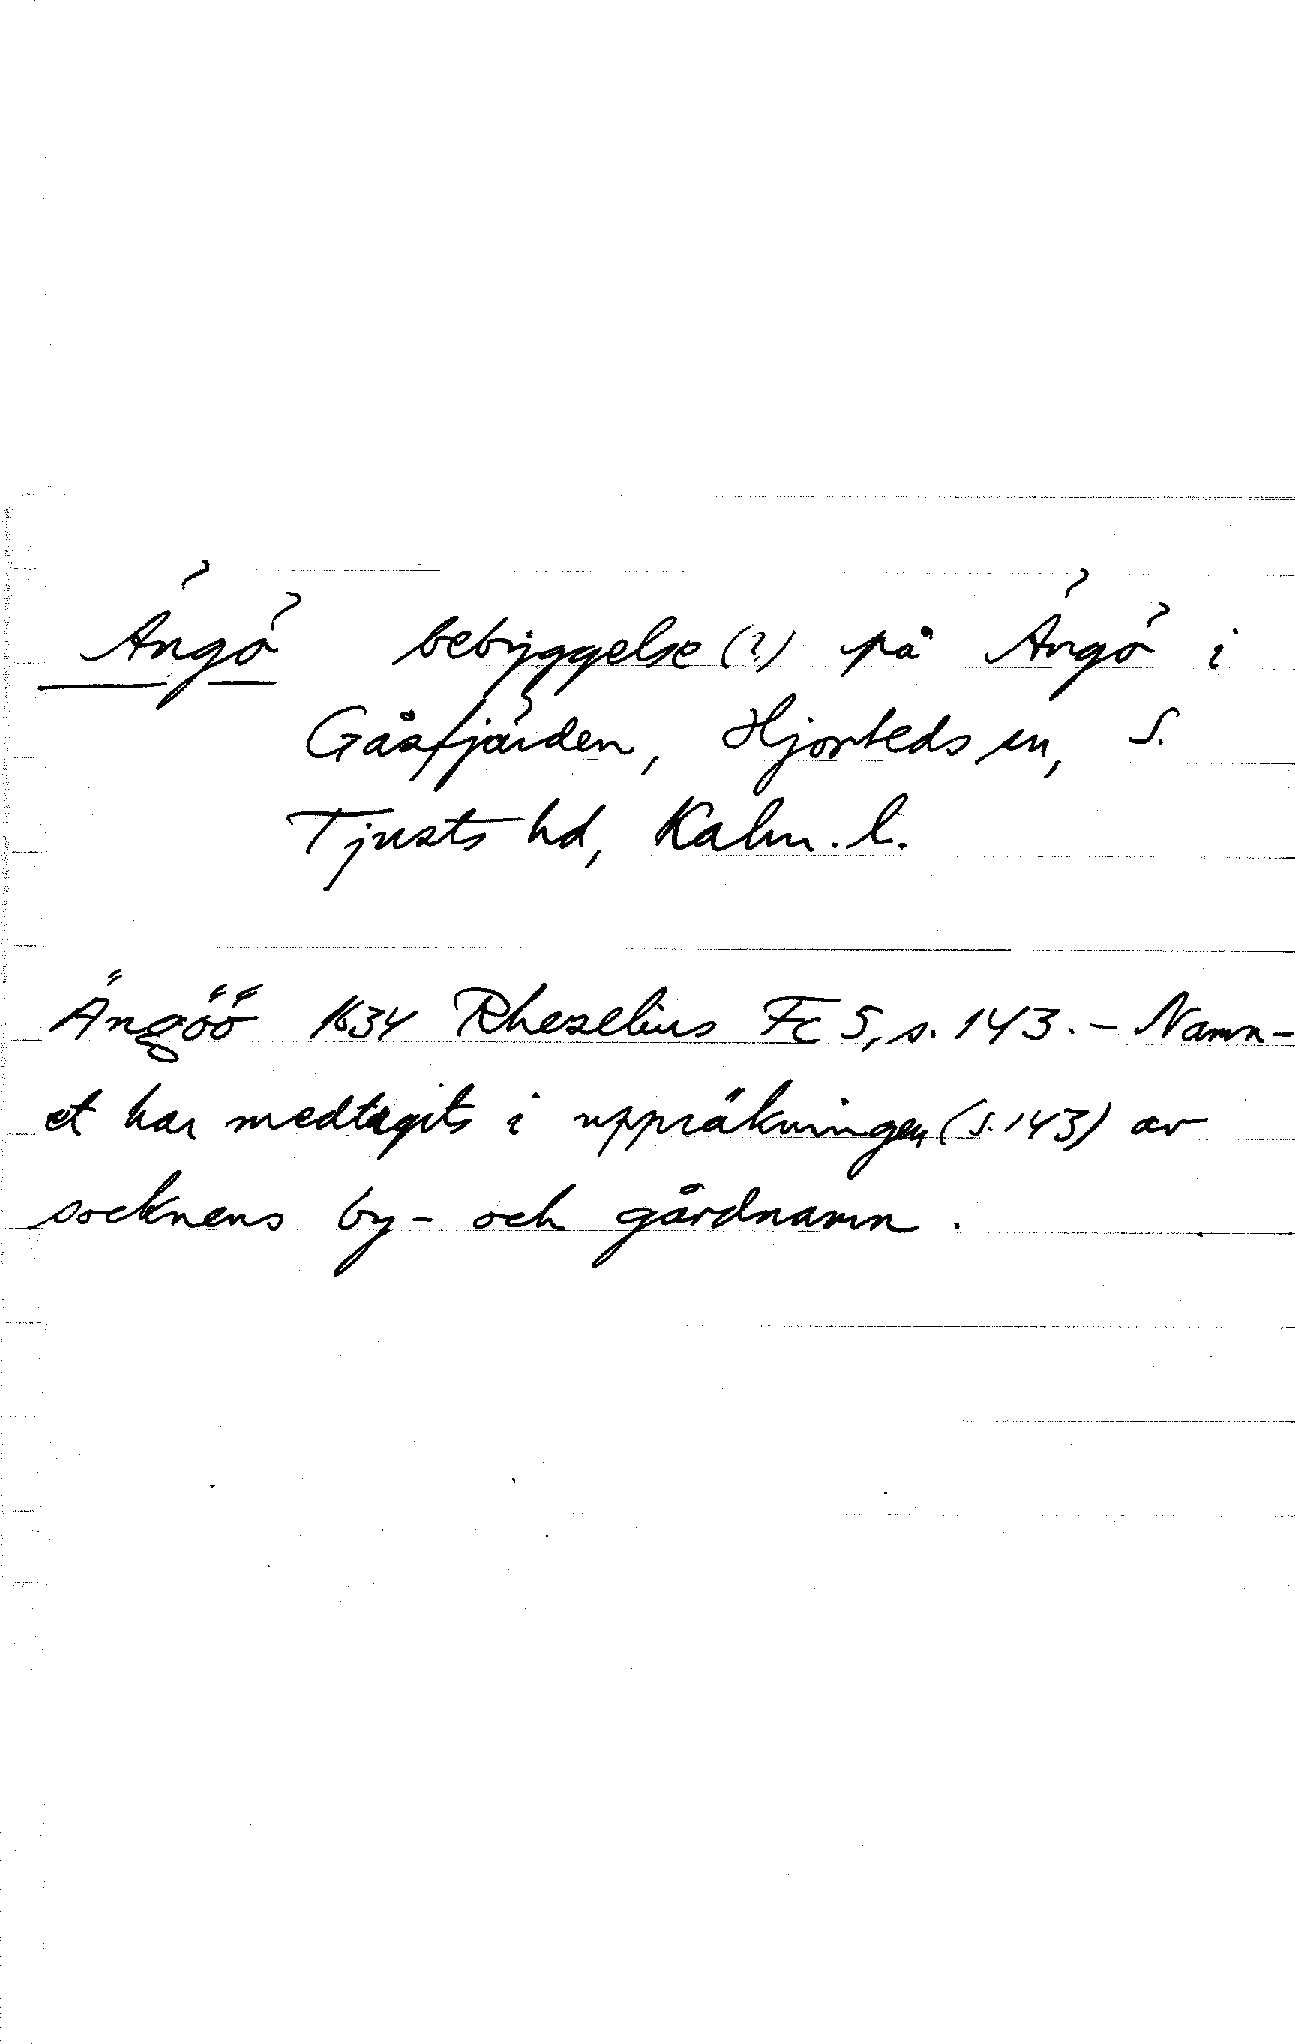 Ängö bebyggelse (?) på Ängö i
Gåsfjärden, Hjorteds sn, S.
Tjusts hd, Kalm. l.
Ängöö 1634 Rhezelius Fc 5, s. 143. – Namn-
et har medtagits i uppräkningen (s. 143) av
socknens by- och gårdnamn.